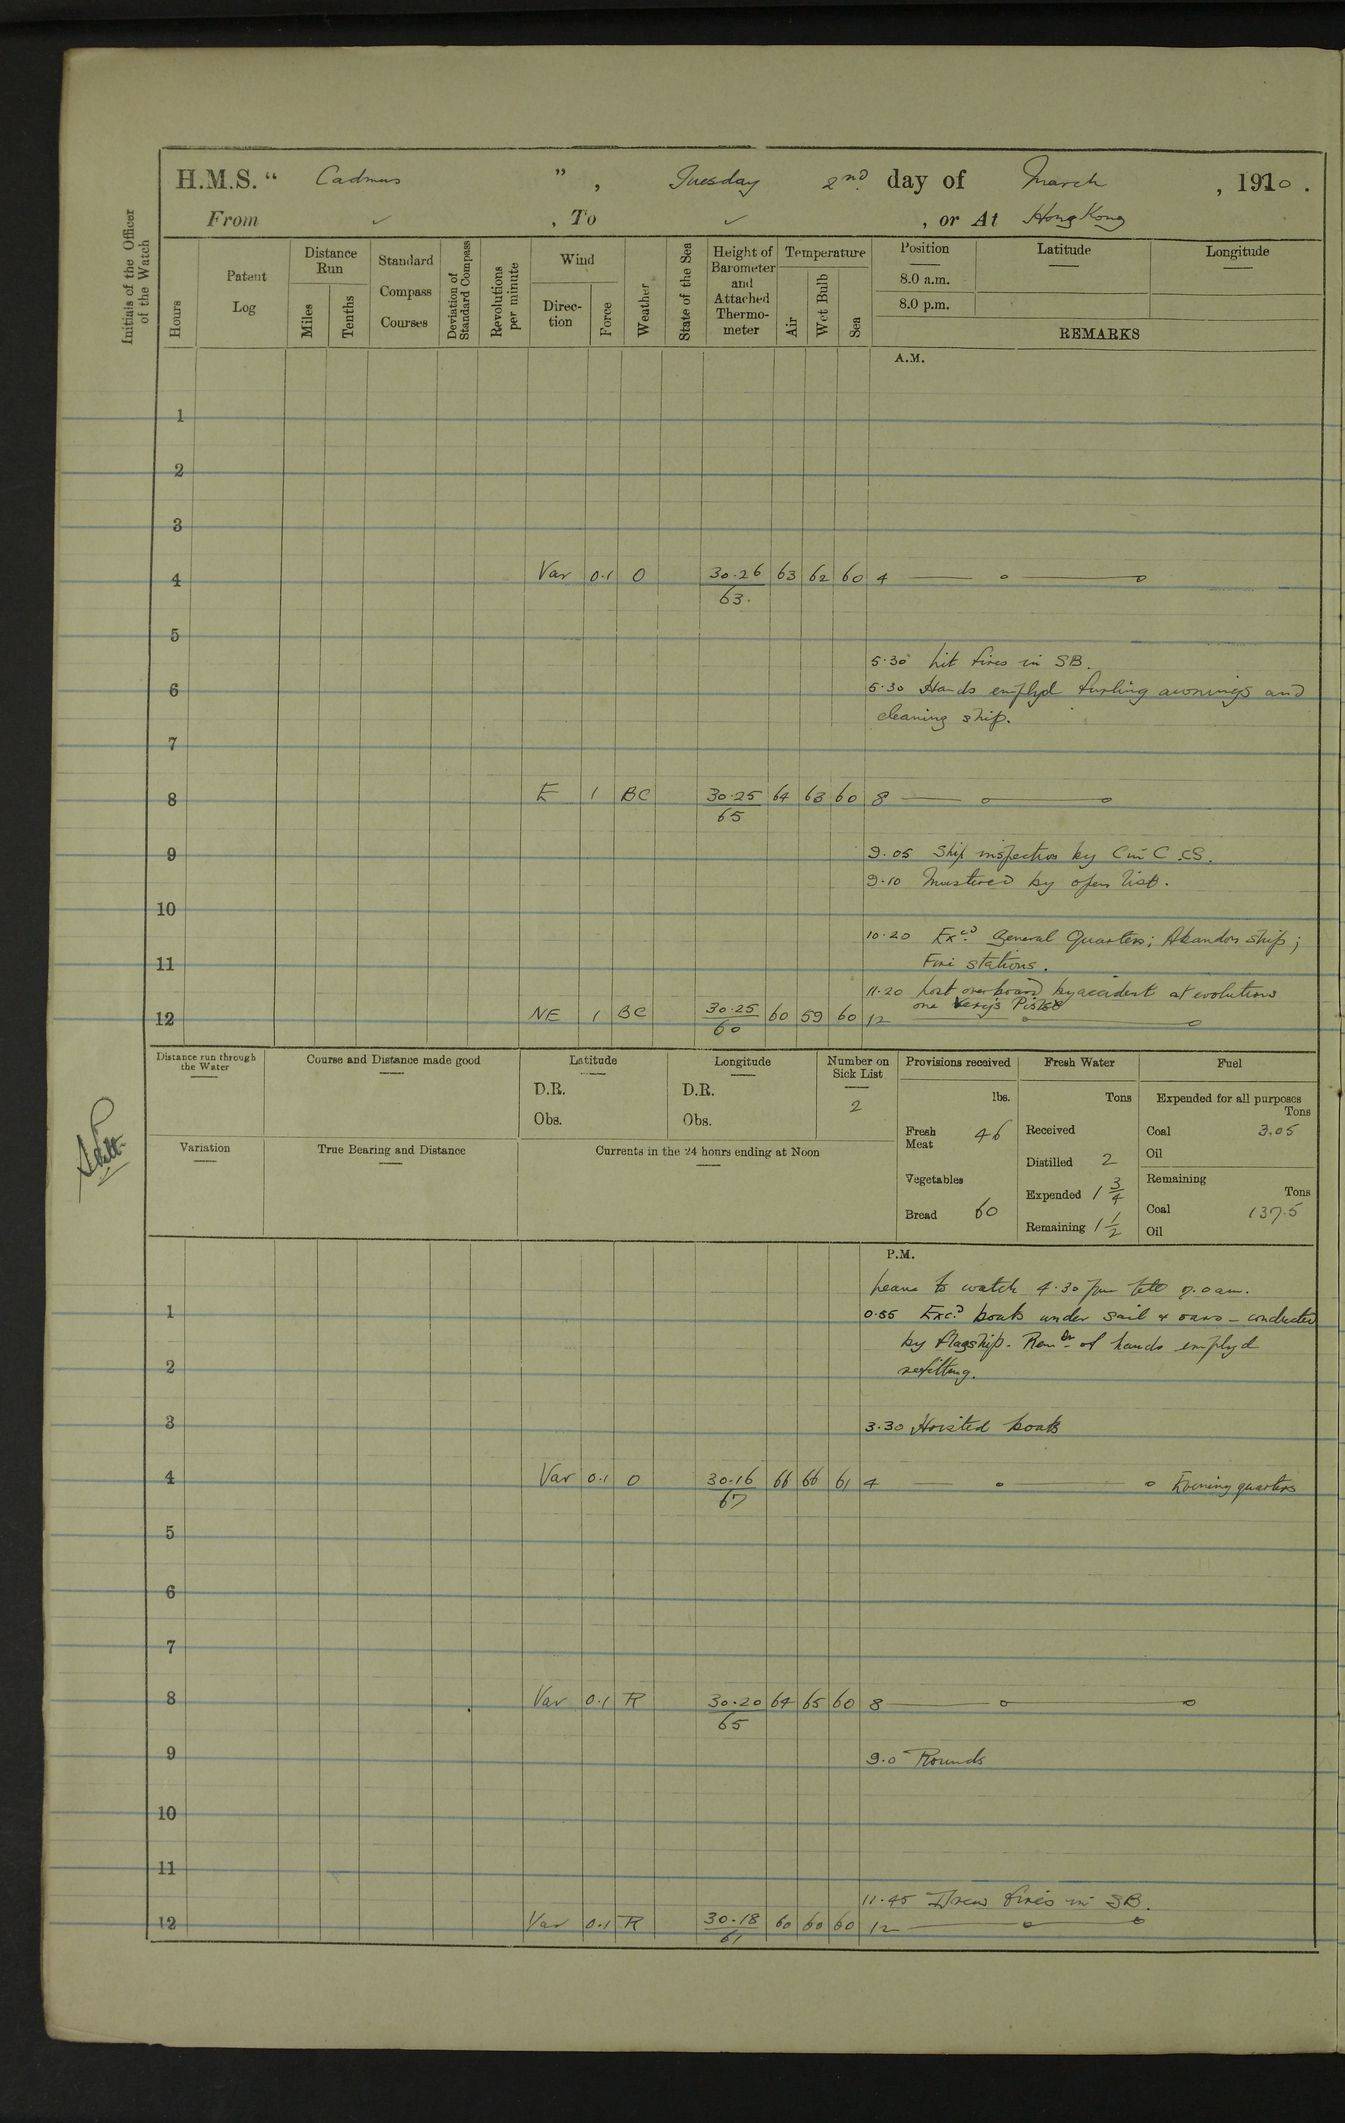 H.M.S. “ Cadmus ” , Tuesday 2nd day of March , 1910 .
From ✓ , To ✓ , or At Hong Kong
Initials of the Officer of the Watch
Hours
Patent Log
Distance Run
Miles
Tenths
Standard Compass Courses
Deviation of Standard Compass
Revolutions per minute
Wind
Direc-tion
Force
Weather
State of the Sea
Height of Barometer and Attached Thermo-meter
Temperature
Air
Wet Bulb
Sea
Position Latitude Longitude
8.0 a.m.
8.0 p.m.
REMARKS
A.M.
1
2
3
4 Var 0.1 O 30.26 63 62 60 4
63.
5
5.30 Lit fires in SB.
6 5.30 Hands employd furling awnings and
cleaning ship.
7
8 E 1 BC 30.25 64 63 60 8
65
9 9.05 Ship inspection by C in C .CS.
9.10 Mustered by open list.
10
10.20 Excd General Quarters; Abandon ship;
11 Fire stations.
11.20 Lost overboard by accident at evolutions
one Verey's Pistol
12 NE 1 BC 30.25 60 59 60 12
60
Distance run through the Water
Course and Distance made good
Latitude
D.R.
Obs.
Longitude
D.R.
Obs.
Number on Sick List
2
Provisions received
lbs.
Fresh Meat 46
Vegetables
Bread 60
Fresh Water
Tons
Received
Distilled 2
Expended 1 3/4
Remaining 1 1/2
Fuel
Expended for all purposes
Tons
Coal 3.05
Oil
Remaining
Tons
Coal 137.5
Oil
Variation
True Bearing and Distance
Currents in the 24 hours ending at Noon
P.M.
Leave to watch 4.30 pm till 7.0 am.
1 0.55 Excd boats under sail & oars - conducted
by flagship. Remdr of hands employd
2 refitting.
3 3.30 Hoisted boats
4 Var 0.1 O 30.16 66 66 61 4 Evening quarters
67
5
6
7
8 Var 0.1 R 30.20 64 65 60 8
65
9 9.0 Rounds
10
11
11.45 Drew fires in SB.
12 Var 0.1 R 30.18 60 60 60 12
61